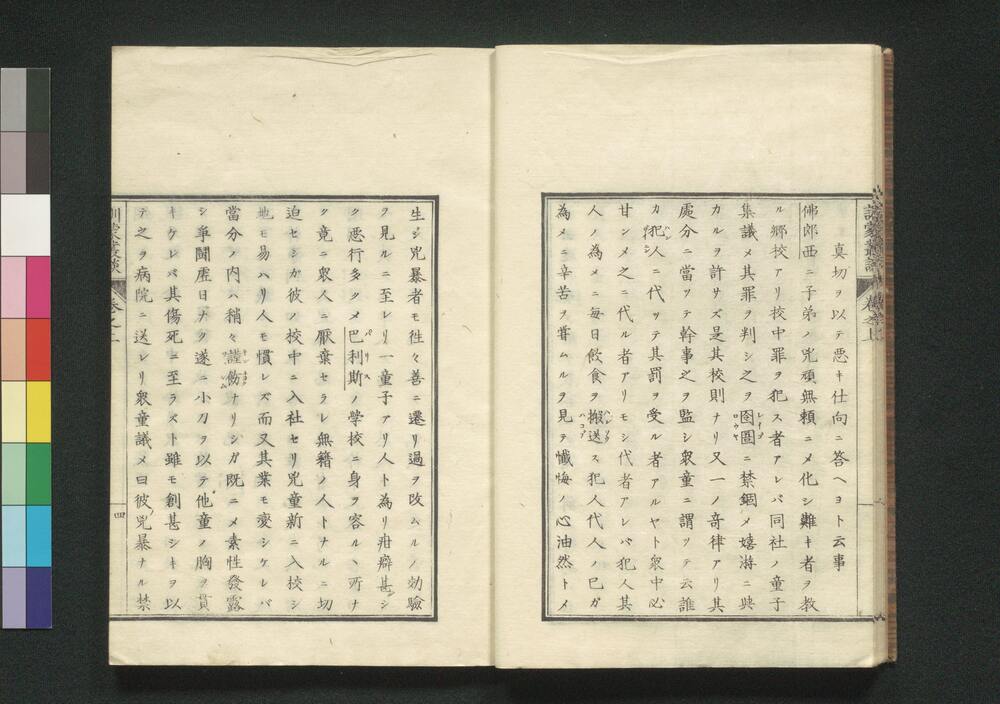 真切ヲ以テ悪キ仕向ニ答ヘヨト云事
佛郎西ニ子弟ノ兇頑無頼ニメ化シ難キ者ヲ教
ル郷校アリ校中罪ヲ犯ス者アレバ同社ノ童子
集議メ其罪ヲ判シ之ヲ囹圄ニ禁錮メ嬉游ニ與
カルヲ許サズ是其校則ナリ又一ノ奇律アリ其
處分ニ當ツテ幹事之ヲ監シ衆童ニ謂ツテ云誰
カ犯人ニ代ツテ其罰ヲ受ル者アルヤト衆中必
甘ンメ之ニ代ル者アリモシ代者アレバ犯人其
人ノ為メニ毎日飲食ヲ搬送ス犯人代人ノ己ガ
為メニ辛苦ヲ甞ムルヲ見テ懺悔ノ心油然トメ
生シ兇暴者モ徃々善ニ遷リ過ヲ改ムルノ効驗
ヲ見ルニ至レリ一童子アリ人ト為リ疳癖甚シ
ク悪行多クメ巴利斯ノ学校ニ身ヲ容ルヽ所ナ
ク竟ニ衆人ニ厭棄セラレ無籍ノ人トナルニ切
迫セシガ彼ノ校中ニ入社セリ兇童新ニ入校シ
地モ易ハリ人モ慣レズ而又其業モ変シケレバ
當分ノ内ハ稍々謹飭ナリシガ既ニメ素性發露
シ爭鬪虚日ナク遂ニ小刀ヲ以テ他童ノ胸ヲ貫
キケレバ其傷死ニ至ラズト雖モ創甚シキヲ以
テ之ヲ病院ニ送レリ衆童議メ曰彼ノ兇暴ナル禁
訓蒙叢談
四